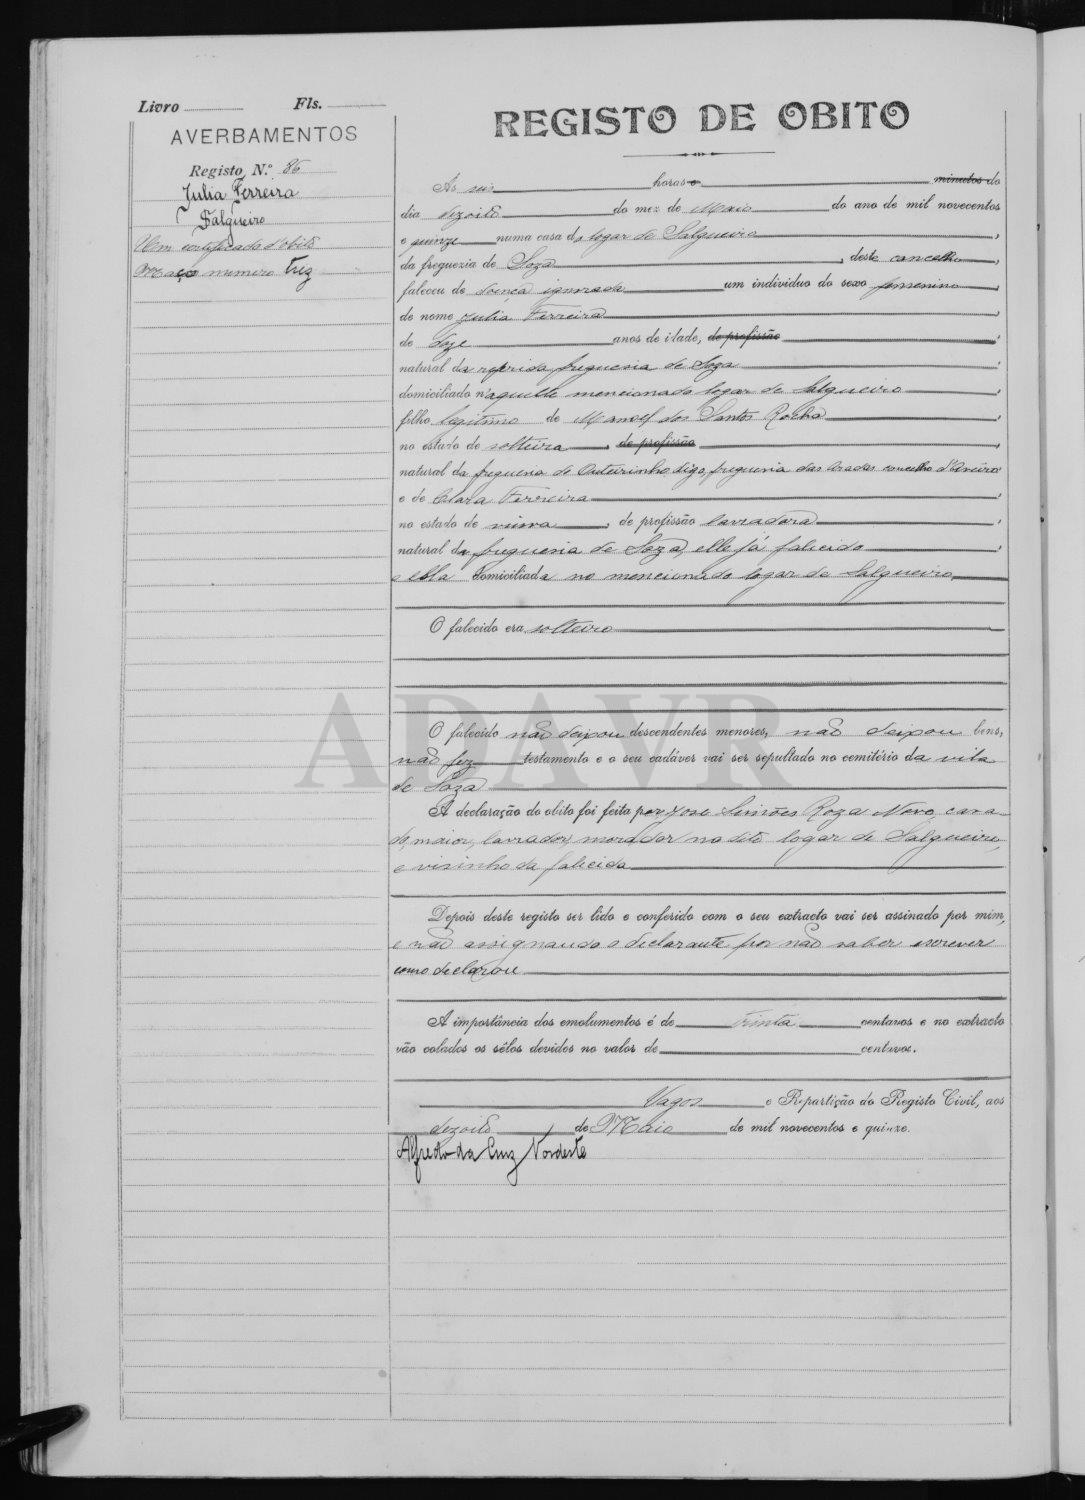 Livro Fls.
AVERBAMENTOS
Registo N.º 86
Julia Ferreira
Salgueiro
Um certificado d'obito
Maço numero trez
REGISTO DE OBITO
Ás seis horas e minutos do
dia dezoito do mez de Maio do ano de mil novecentos
e quinze numa casa do logar de Salgueiro,
da freguezia de Soza, deste concelho,
faleceu de doença ignorada um individuo do sexo femenino,
de nome Julia Ferreira,
de doze anos de idade, de profissão,
natural da referida freguesia de Soza,
domiciliado n'aquelle mencionado logar de Salgueiro,
filho legitimo de Manoel dos Santos Rocha
no estado de solteira, de profissão,
natural da freguesia de Outeirinho digo, freguesia das Aradas concelho d'Aveiro
e de Clara Ferreira,
no estado de viuva, de profissão lavradora,
natural da freguesia de Soza, elle já falecido,
e ella domiciliada no mencionado logar de Salgueiro
O falecido era solteiro
ADAVR
O falecido não deixou descendentes menores, não deixou bens,
não fez testamento e o seu cadáver vai ser sepultado no cemitério da vila
de Soza
A declaração do obito foi feita por José Simões Roza Novo, casa-
do, maior, lavrador, morador no dito logar de Salgueiro,
e visinho da falecida
Depois deste registo ser lido e conferido com o seu extracto vai ser assinado por mim,
e não assignando o declarante por não saber escrever
como declarou
A importância dos emolumentos é de trinta centavos e no extracto
vão colados os sêlos devidos no valor de centavos.
Vagos e Repartição do Registo Civil, aos
dezoito de Maio de mil novecentos e quinze.
Alfredo da Cruz Nordeste